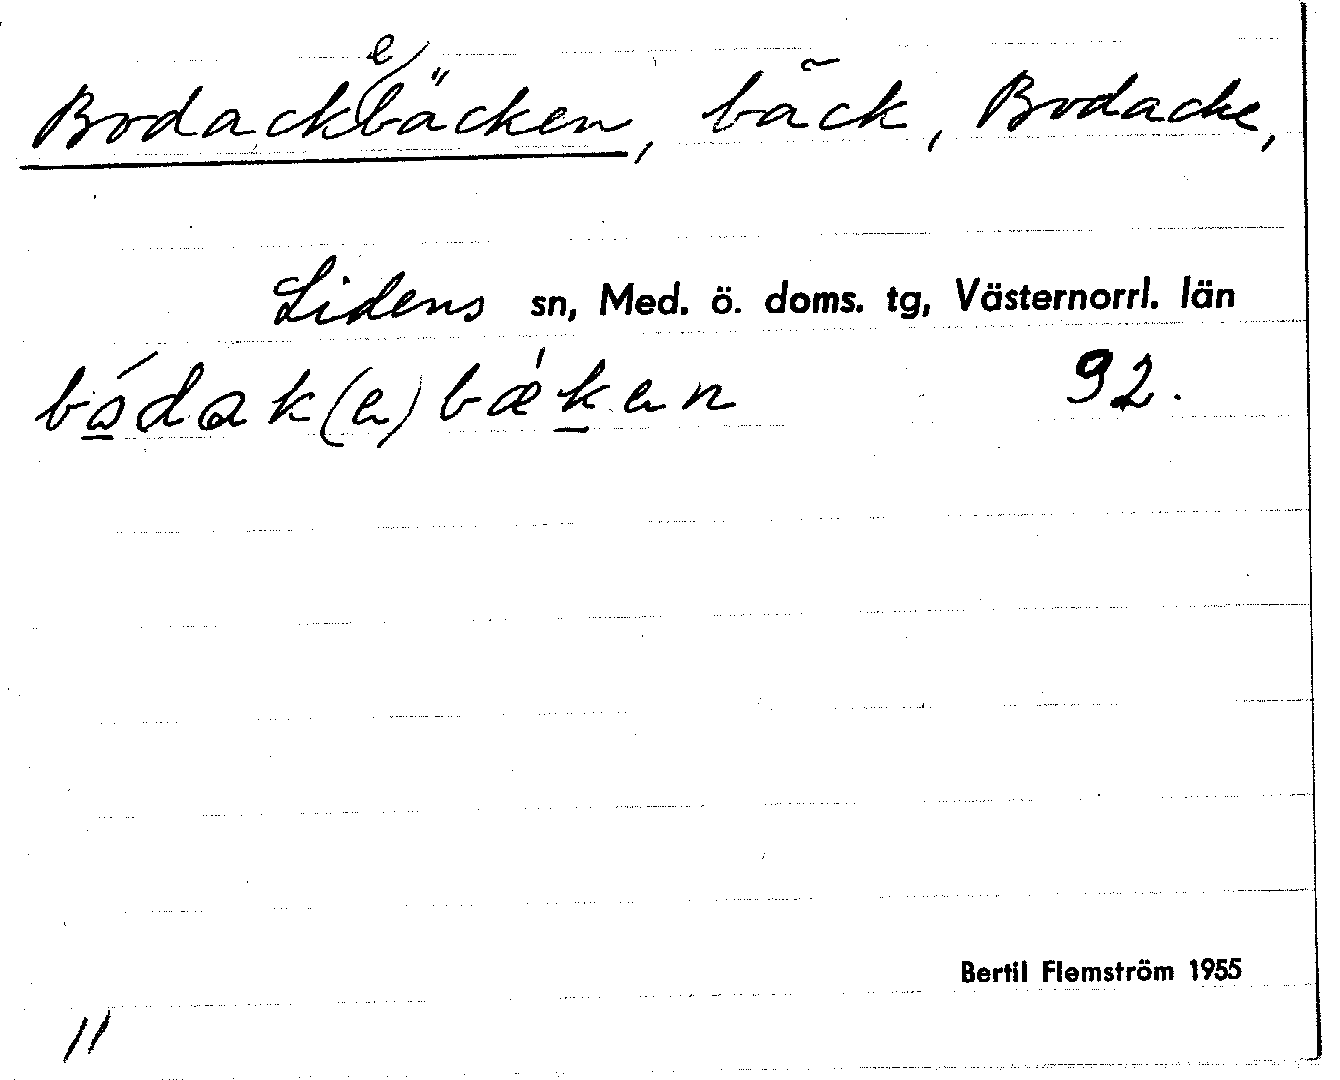 Bodackebäcken, bäck, Bodacke,
Lidens sn, Med. ö. doms. tg, Västernorrl. län
bódak(e)bǽken 92.
Bertil Flemström 1955
11